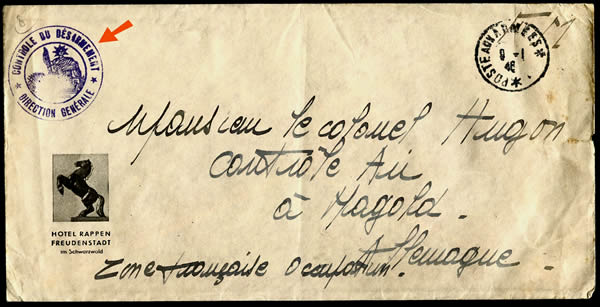 CONTRÔLE DU DÉSARMEMENT
★ DIRECTION GÉNÉRALE ★
POSTE AUX ARMÉES
9 - 1
46
Monsieur le colonel Hugon
Contrôle Air
à Nagold.
Allemagne
Zone française Occupation.
HOTEL RAPPEN
FREUDENSTADT
im Schwarzwald